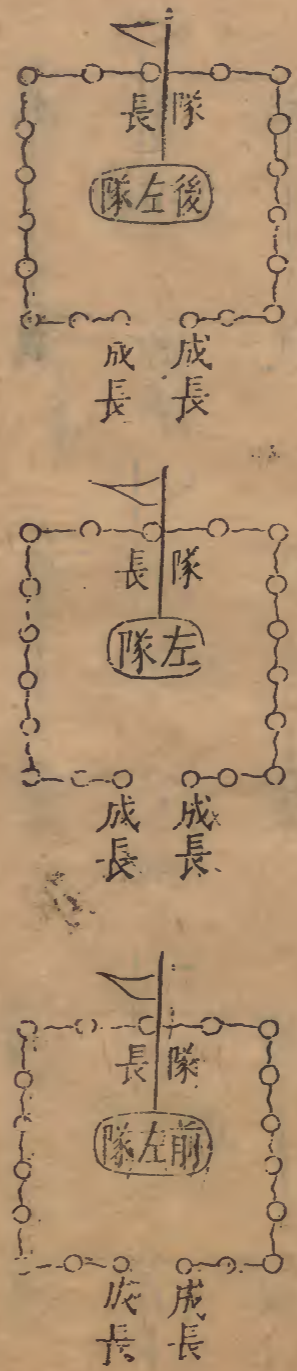 隊長
後左隊
成長
成長
隊長
左隊
成長
成長
隊長
前左隊
成長
成長